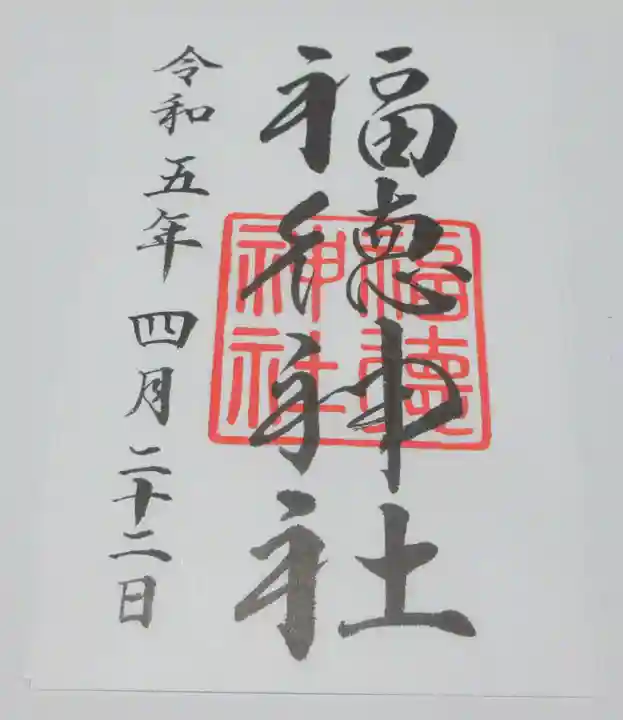 福徳神社
福徳神社
令和五年四月二十二日